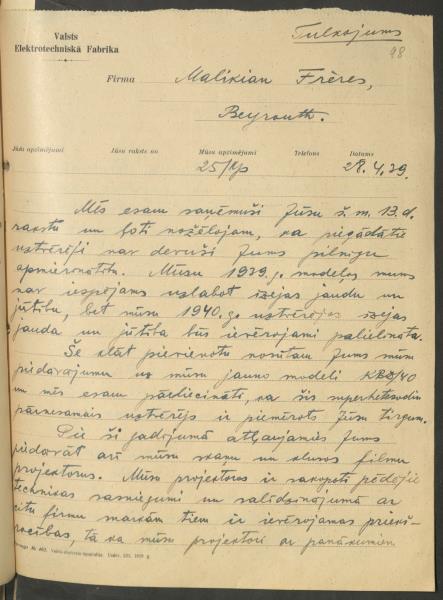 Valsts
Elektrotechniskā Fabrika
Tulkojums
98
Firma Malikian Frères,
Beyrouth.
Jūsu apzīmējumi Jūsu raksts no Mūsu apzīmējumi Telefons Datums
25/Kp 28.4.39.
Mēs esam saņēmuši Jūsu š.m. 13.d.
rakstu un ļoti nožēlojam, ka piegādātie
uztvērēji nav devuši Jums pilnīgu
apmierinātību. Mūsu 1939.g. modeļos mums
nav iespējams uzlabot izejas jaudu un
jūtību, bet mūsu 1940.g. uztvērējos izejas
jauda un jūtība būs ievērojami palielināta.
Še klāt pievienotu nosūtam Jums mūsu
piedāvājumu uz mūsu jauno modeli /40
un mēs esam pārliecināti, ka šis superheterodin
pārnesamais uztvērējs ir piemērots Jūsu tirgum.
Pie šī gadījumā atļaujamies Jums
piedāvāt arī mūsu skaņu un klusos filmu
projektorus. Mūsu projektoros ir sakopoti pēdējie
technikas sasniegumi un salīdzinājumā ar
citu firmu markām tiem ir ievērojamas priekš-
rocības, tā ka mūsu projektori ar panākumiem